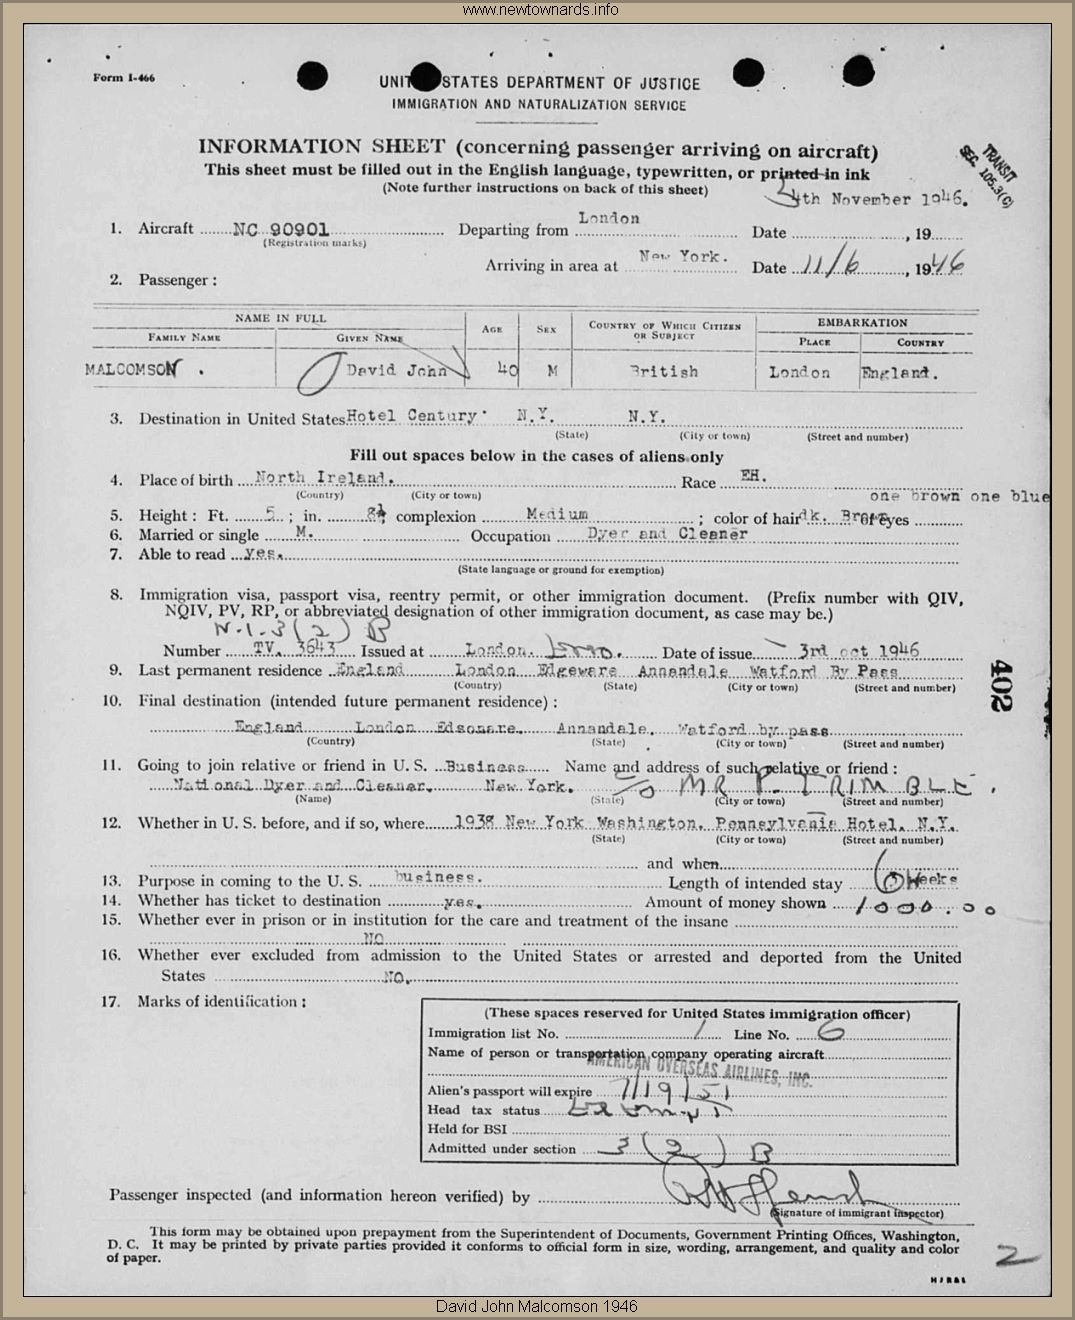 www.newtownards.info
Form I-466
UNITED STATES DEPARTMENT OF JUSTICE
IMMIGRATION AND NATURALIZATION SERVICE
INFORMATION SHEET (concerning passenger arriving on aircraft)
This sheet must be filled out in the English language, typewritten, or printed in ink
(Note further instructions on back of this sheet)
TRANSIT
SEC. 105.3(C)
4th November 1946.
1. Aircraft NC 90901 Departing from London Date , 19
(Registration marks)
Arriving in area at New York. Date 11/6, 1946
2. Passenger:
NAME IN FULL AGE SEX COUNTRY OF WHICH CITIZEN OR SUBJECT EMBARKATION
FAMILY NAME GIVEN NAME PLACE COUNTRY
MALCOMSON. David John 40 M British London England.
3. Destination in United States Hotel Century N.Y. N.Y.
(State) (City or town) (Street and number)
Fill out spaces below in the cases of aliens only
4. Place of birth North Ireland. Race EH.
(Country) (City or town)
one brown one blue
5. Height: Ft. 5 ; in. 8½ complexion Medium ; color of hair dk. Brown of eyes
6. Married or single M. Occupation Dyer and Cleaner
7. Able to read yes.
(State language or ground for exemption)
8. Immigration visa, passport visa, reentry permit, or other immigration document. (Prefix number with QIV,
NQIV, PV, RP, or abbreviated designation of other immigration document, as case may be.)
N.I-3(2) B
Number TV. 3643 Issued at London. Date of issue 3rd oct 1946
9. Last permanent residence England London Edgeware Annandale Watford By Pass
(Country) (State) (City or town) (Street and number)
402
10. Final destination (intended future permanent residence):
England London Edgware. Annandale. Watford by pass
(Country) (State) (City or town) (Street and number)
11. Going to join relative or friend in U. S. Business Name and address of such relative or friend:
National Dyer and Cleaner. New York. C/O MR P. TRIMBLE.
(Name) (State) (City or town) (Street and number)
12. Whether in U. S. before, and if so, where 1938 New York Washington, Pennsylvania Hotel. N.Y.
(State) (City or town) (Street and number)
and when
13. Purpose in coming to the U. S. business. Length of intended stay 6 Weeks
14. Whether has ticket to destination yes. Amount of money shown 1000.00
15. Whether ever in prison or in institution for the care and treatment of the insane
NO
16. Whether ever excluded from admission to the United States or arrested and deported from the United
States NO.
17. Marks of identification:
(These spaces reserved for United States immigration officer)
Immigration list No. 1 Line No. 6
Name of person or transportation company operating aircraft
AMERICAN OVERSEAS AIRLINES, INC.
Alien's passport will expire 7/19/51
Head tax status Exempt
Held for BSI
Admitted under section 3(2) B
Passenger inspected (and information hereon verified) by
(Signature of immigrant inspector)
This form may be obtained upon prepayment from the Superintendent of Documents, Government Printing Offices, Washington,
D. C. It may be printed by private parties provided it conforms to official form in size, wording, arrangement, and quality and color
of paper.
2
David John Malcomson 1946